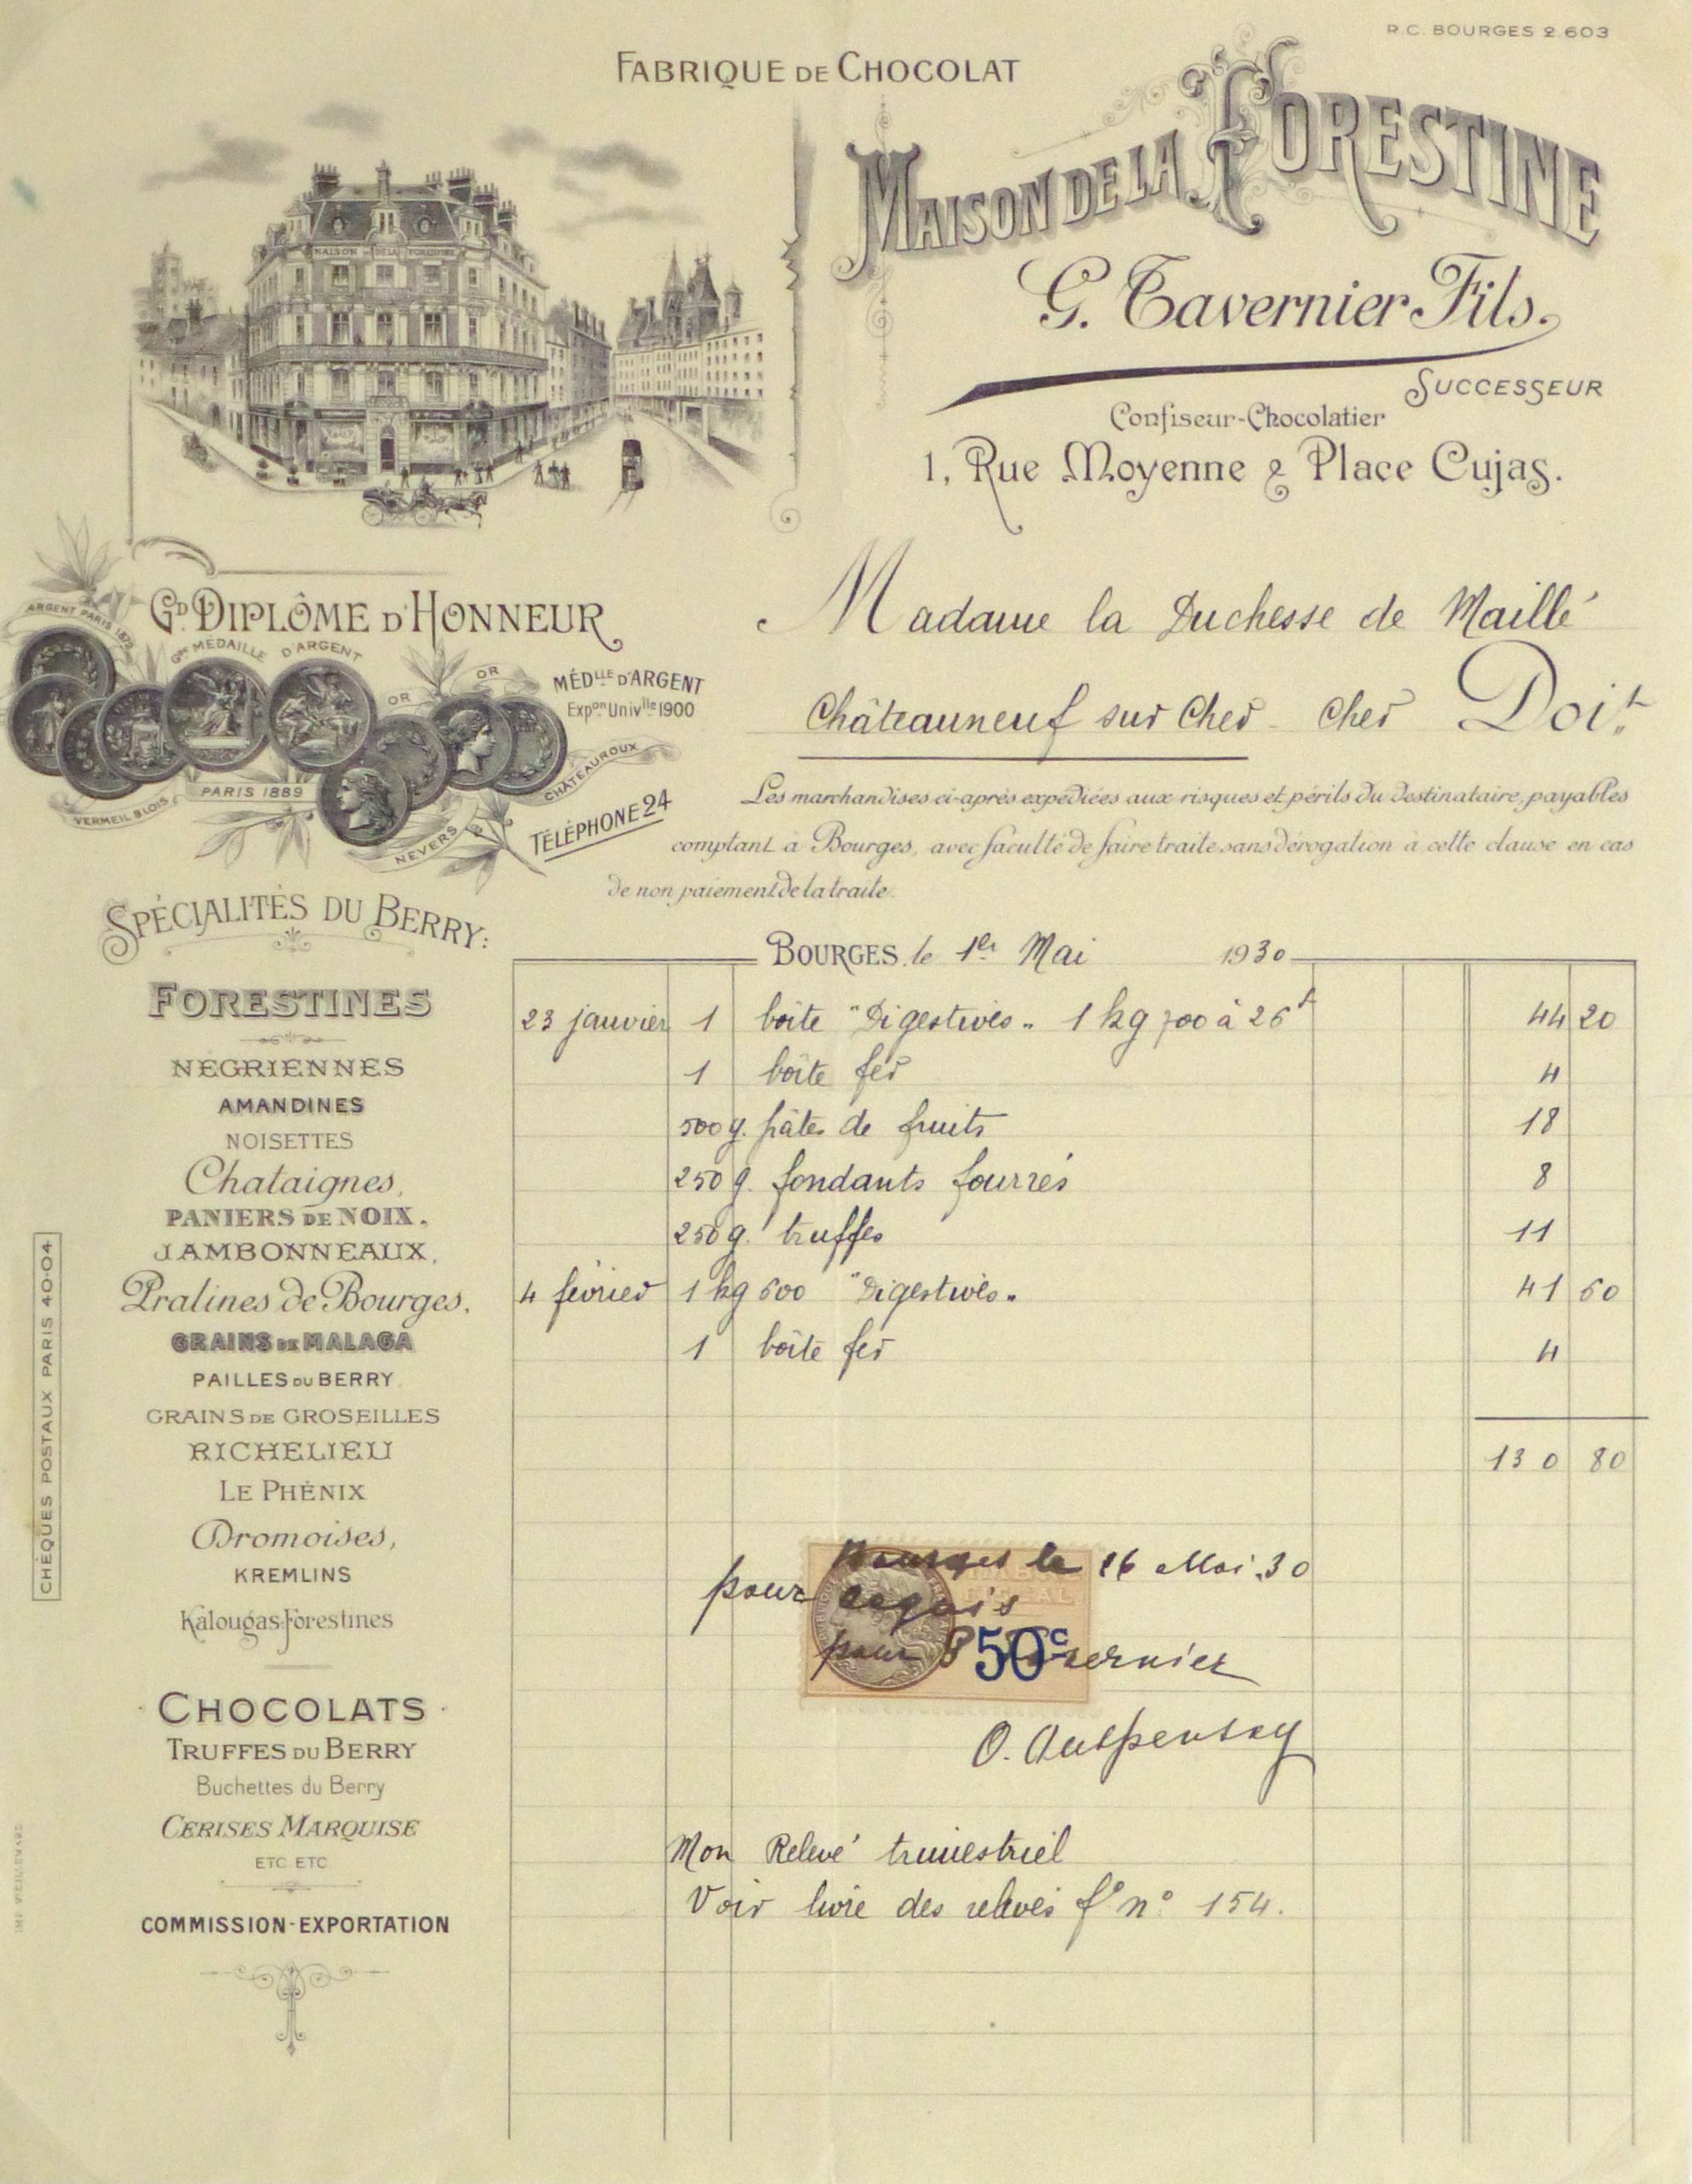 R.C. BOURGES 2.603
FABRIQUE DE CHOCOLAT
MAISON DE LA FORESTINE
MAISON DE LA FORESTINE
G. Tavernier Fils.
SUCCESSEUR
Confiseur-Chocolatier
1, Rue Moyenne & Place Cujas.
GD DIPLÔME D'HONNEUR
ARGENT PARIS
GDE MÉDAILLE D'ARGENT
OR
OR
MÉDLLE D'ARGENT
Expon Univlle 1900
PARIS 1889
VERMEIL BLOIS
NEVERS
CHÂTEAUROUX
TÉLÉPHONE 24
Madame la Duchesse de Maillé
Châteauneuf sur Cher - Cher Doit
Les marchandises ci-après expédiées aux risques et périls du destinataire, payables
comptant à Bourges, avec faculté de faire traite sans dérogation à cette clause en cas
de non paiement de la traite.
SPÉCIALITÉS DU BERRY:
FORESTINES
NÉGRIENNES
AMANDINES
NOISETTES
Chataignes,
PANIERS DE NOIX,
JAMBONNEAUX,
Pralines de Bourges,
GRAINS DE MALAGA
PAILLES DU BERRY
GRAINS DE GROSEILLES
RICHELIEU
LE PHÉNIX
Dromoises,
KREMLINS
Kalougas-Forestines
CHOCOLATS
TRUFFES DU BERRY
Buchettes du Berry
CERISES MARQUISE
ETC. ETC.
COMMISSION-EXPORTATION
CHÈQUES POSTAUX PARIS 40-04
BOURGES, le 1er Mai 1930
23 janvier 1 boîte "Digestives" 1 kg 700 à 26f 44 20
1 boîte fer 4
500 g. pâtes de fruits 18
250 g. fondants fourrés 8
250 g. truffes 11
4 février 1 kg 600 "Digestives" 41 60
1 boîte fer 4
130 80
Bourges le 16 Mai 30
pour acquis
pour Tavernier
50c
Mon Relevé trimestriel
Voir livre des relevés f° n° 154.